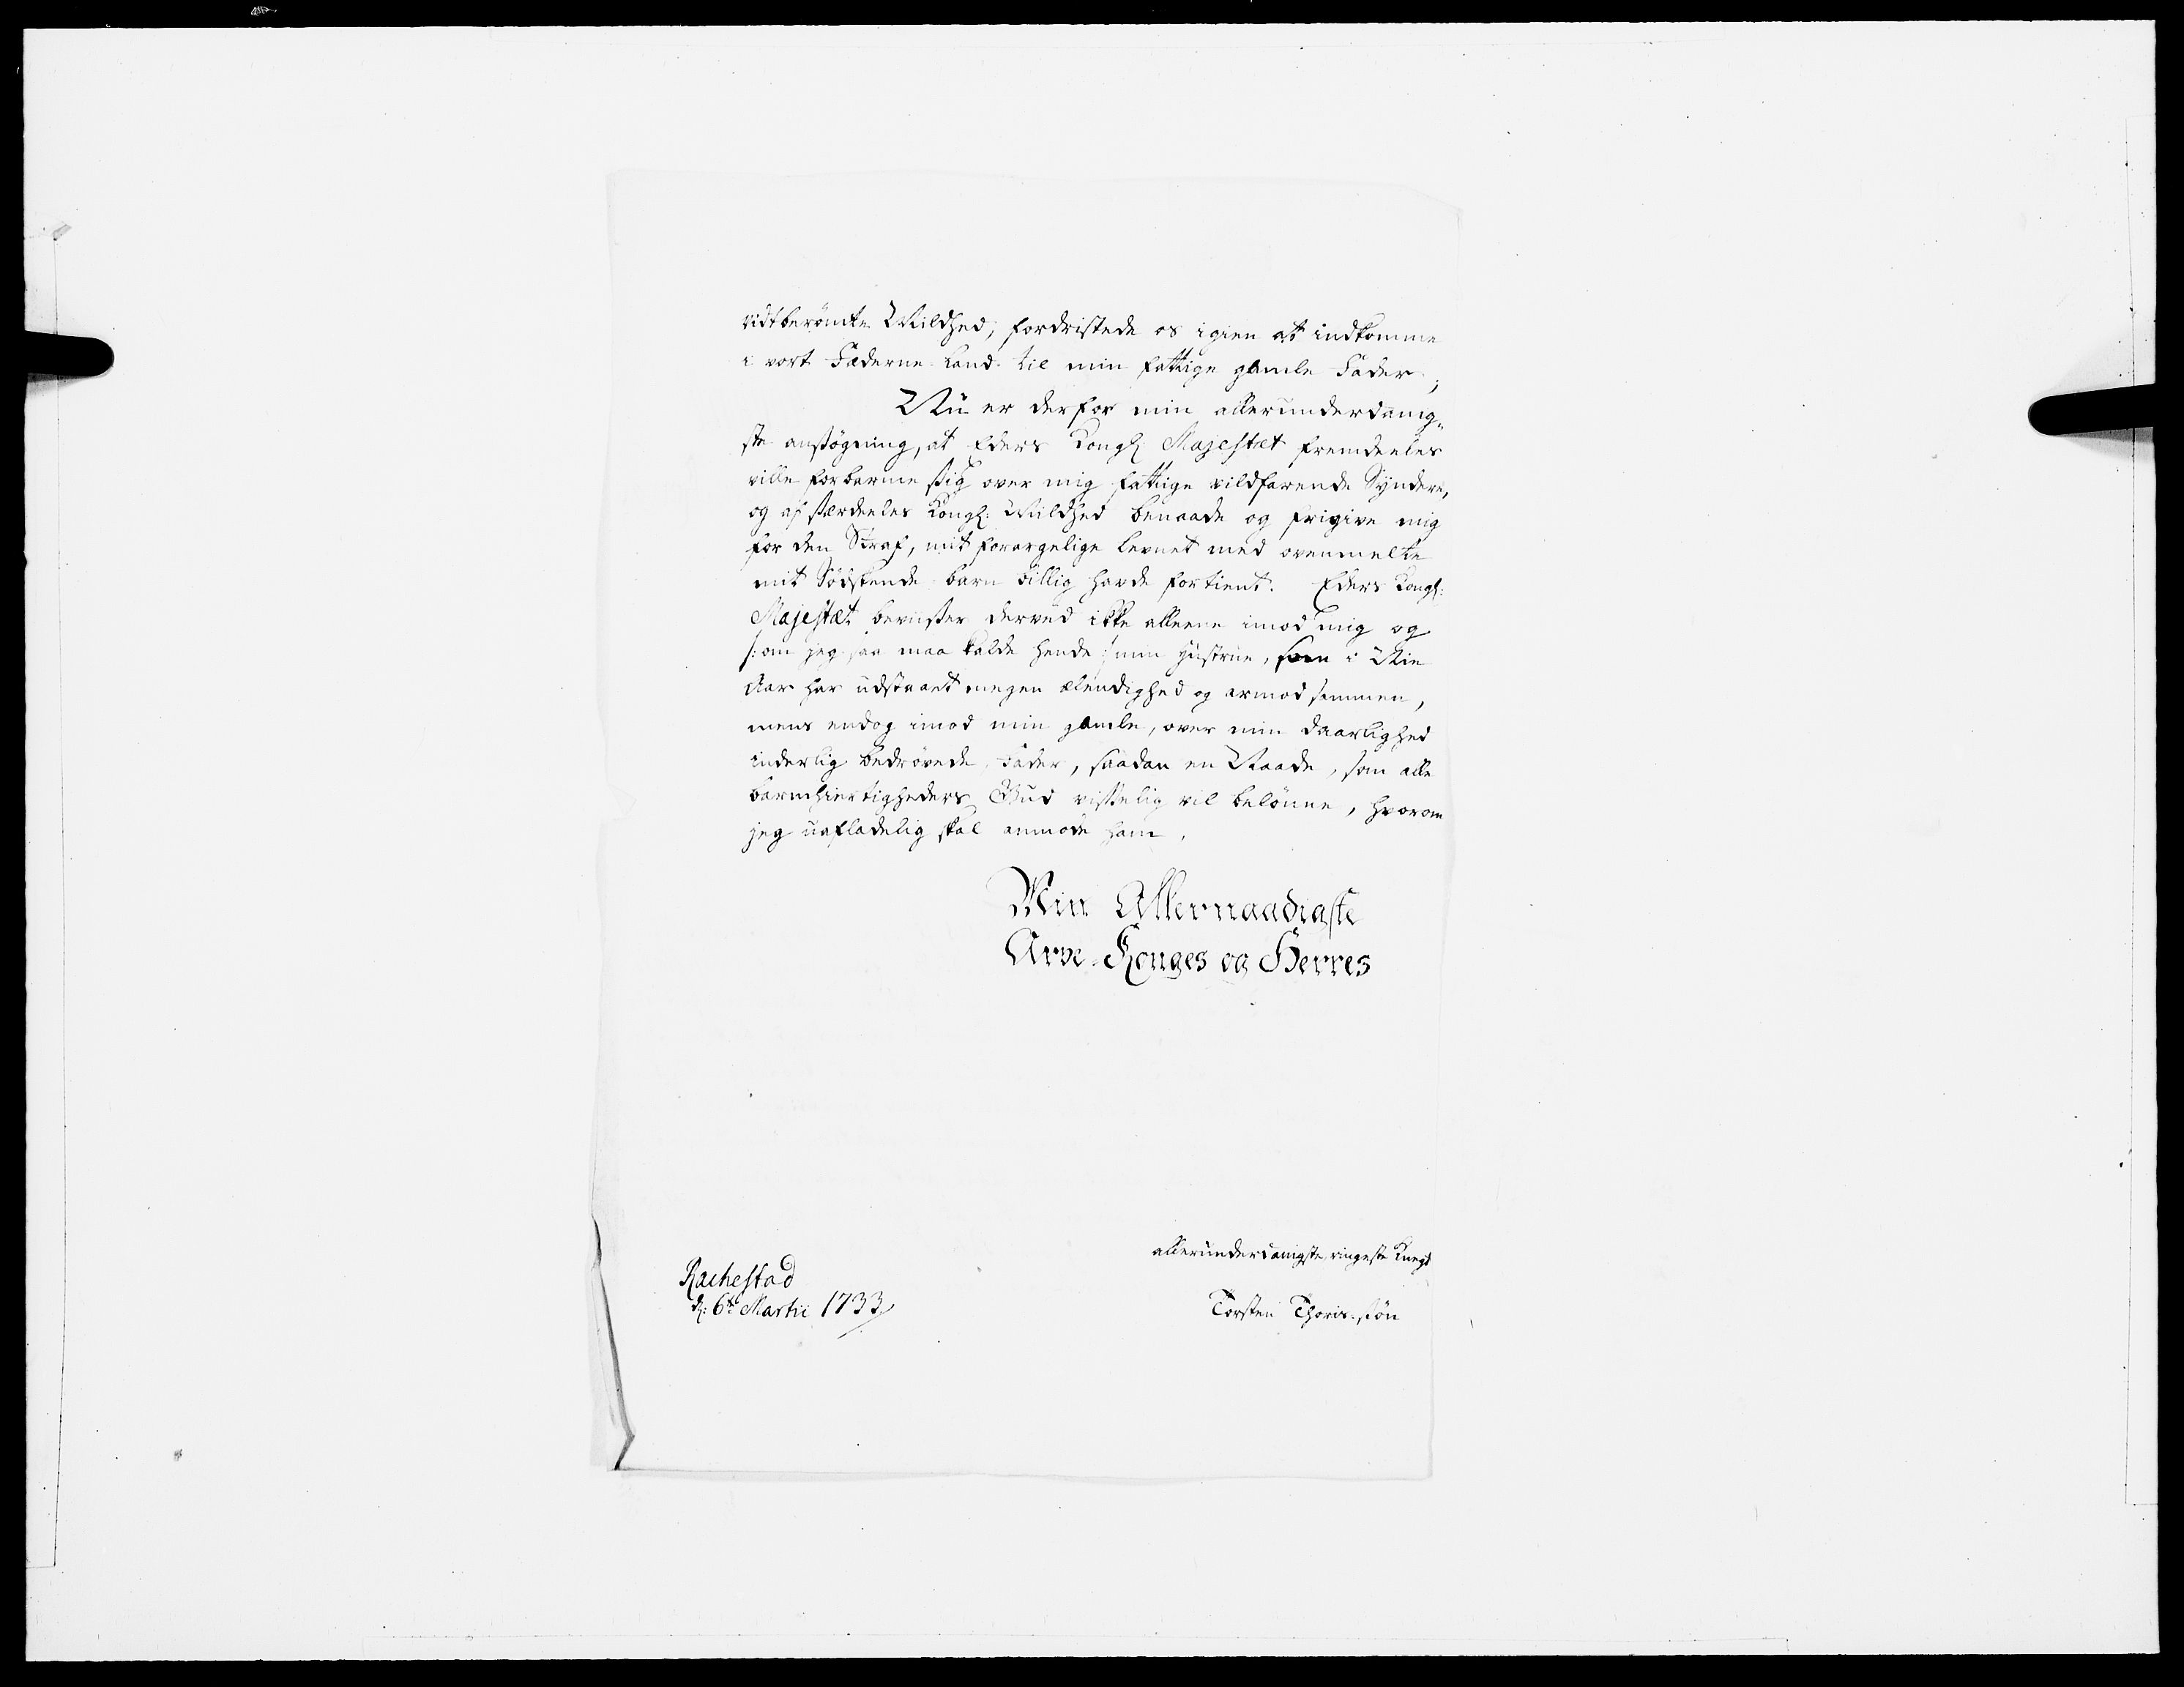 vidtberömte Mildhed, fordristede os igien at indkomme
i vort Fæderne Land til min fattige gamle Fader;
Nu er derfor min allerunderdanig„
ste ansögning, at Eders Kongl: Majestæt fremdeeles
ville forbarme sig over mig fattige vildfarende Syndere,
og af særdeeles Kongl: Mildhed benaade og frigive mig
for den Straf, mit forargelige levnet med ovenmelte
mit Södskende barn billig havde fortient. Eders Kongl:
Majestæt beviiser derved ikke alleene imod mig og
/:om jeg saa maa kalde hende:/ min Hustrue, som i Nie
Aar har udstaaet megen ælendighed og armod sammen,
mens endog imod min gamle, over min daarlighed
inderlig bedrövede Fader, saadan en Naade, som alle
barmhiertigheders Gud visselig vil belönne, hvorom
jeg uafladelig skal anmode ham.
Min Allernaadigste
Arve-Konges og Herres
allerunderdanigste ringeste Knegt
Rachestad
d: 6te Martii 1733
Torsten Thoris-sön